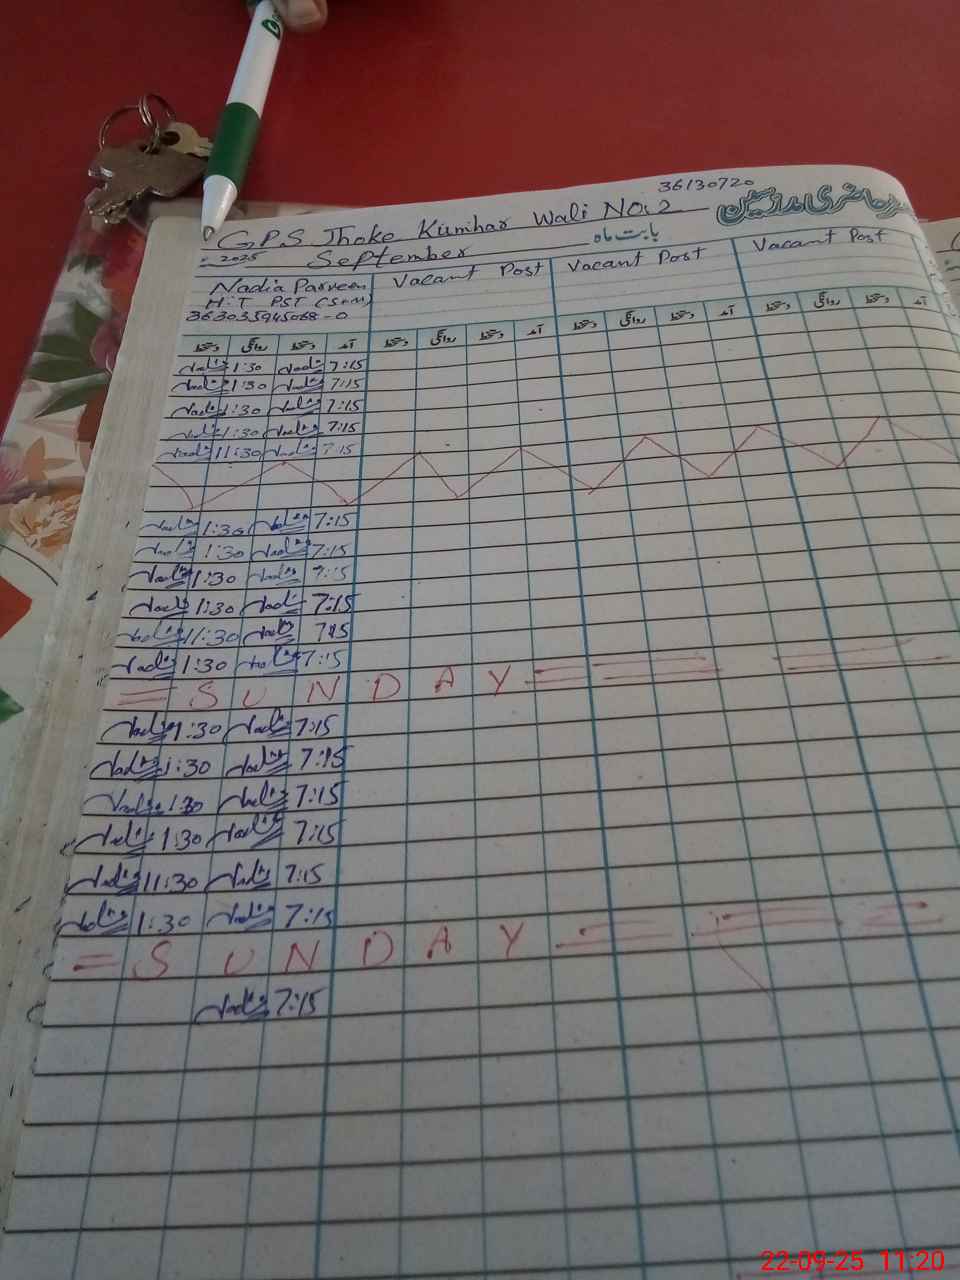 36130720
G.P.S Jhoke Kumhar Wali No.2 حاضری مدرسین
2025 September بابت ماہ
Nadia Parveen Vacant Post Vacant Post Vacant Post
H.T PST (S+M)
363035945068-0
دستخط روانگی دستخط آمد دستخط روانگی دستخط آمد دستخط روانگی دستخط آمد دستخط روانگی دستخط آمد
Nadia 1:30 Nadia 7:15
Nadia 1:30 Nadia 7:15
Nadia 1:30 Nadia 7:15
Nadia 1:30 Nadia 7:15
Nadia 11:30 Nadia 7:15
Nadia 1:30 Nadia 7:15
Nadia 1:30 Nadia 7:15
Nadia 1:30 Nadia 7:15
Nadia 1:30 Nadia 7:15
Nadia 11:30 Nadia 7:15
Nadia 1:30 Nadia 7:15
= S U N D A Y =
Nadia 1:30 Nadia 7:15
Nadia 1:30 Nadia 7:15
Nadia 1:30 Nadia 7:15
Nadia 1:30 Nadia 7:15
Nadia 11:30 Nadia 7:15
Nadia 1:30 Nadia 7:15
= S U N D A Y =
Nadia 7:15
22-09-25 11:20